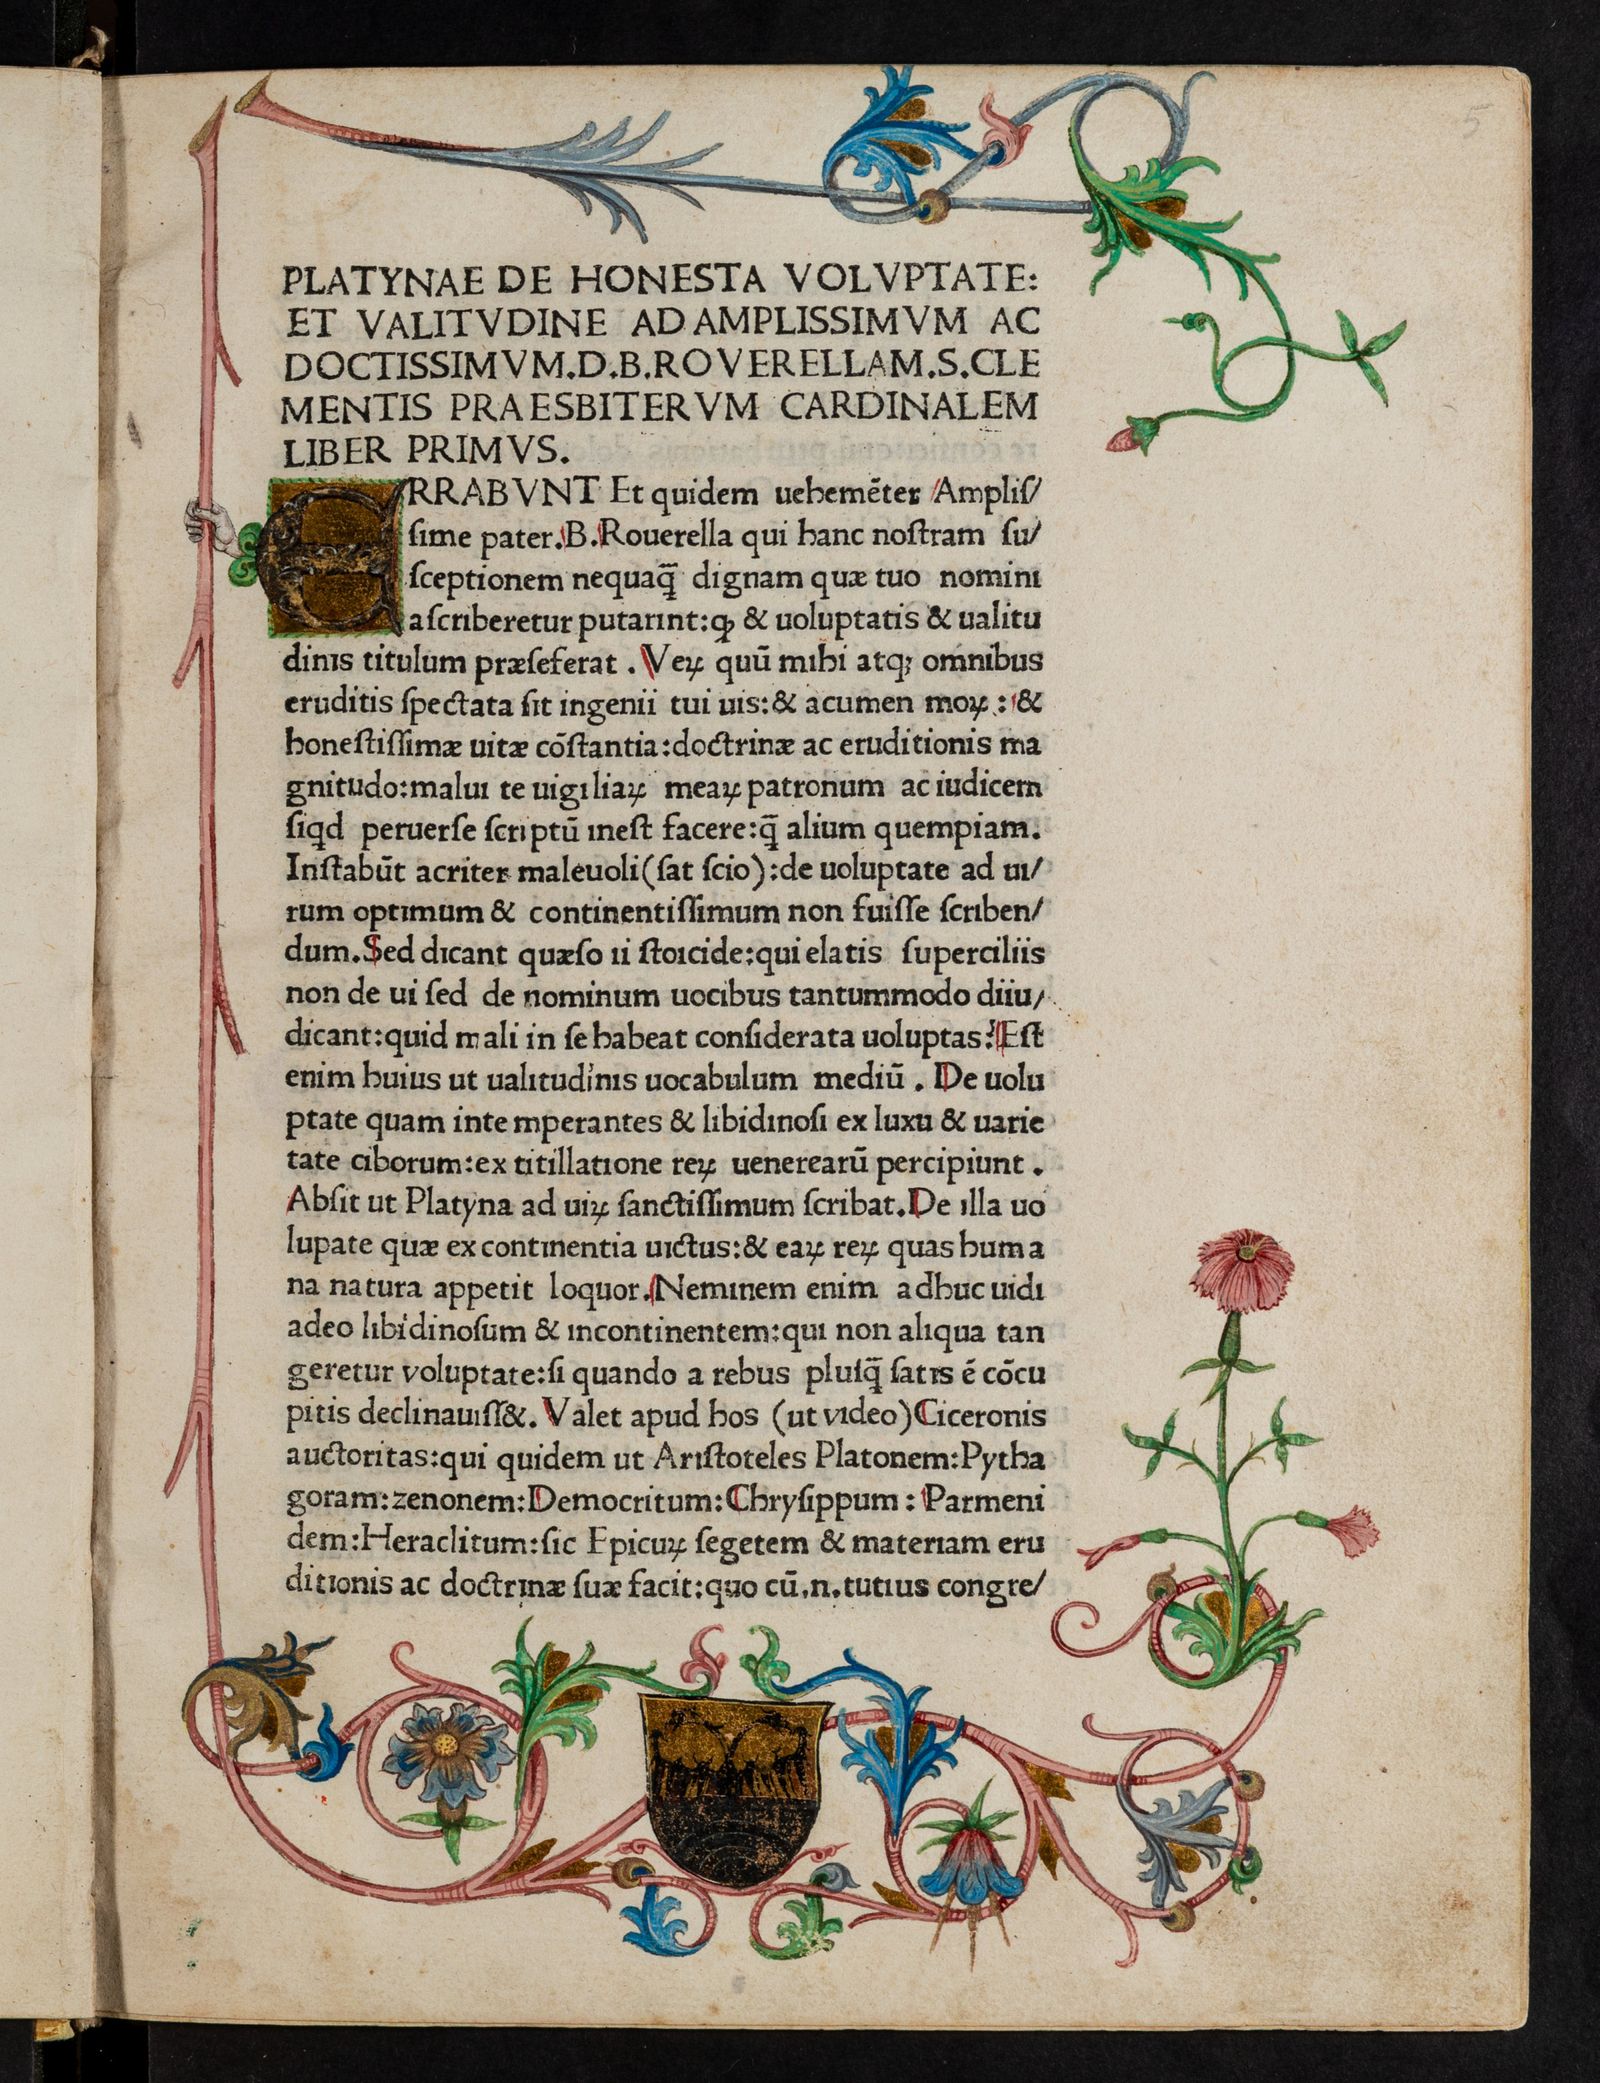 5
PLATYNAE DE HONESTA VOLVPTATE:
ET VALITVDINE AD AMPLISSIMVM AC
DOCTISSIMVM.D.B.ROVERELLAM.S.CLE
MENTIS PRAESBITERVM CARDINALEM
LIBER PRIMVS.
ERRABVNT Et quidem uehemẽter Ampliſ/
ſime pater.B.Rouerella qui hanc noſtram ſu/
ſceptionem nequaq̃ dignam quæ tuo nomini
aſcriberetur putarint:ꝙ & uoluptatis & ualitu
dinis titulum præſeferat. Veꝝ quũ mihi atq; omnibus
eruditis ſpectata ſit ingenii tui uis:& acumen moꝝ:&
honeſtiſſimæ uitæ cõſtantia:doctrinæ ac eruditionis ma
gnitudo:malui te uigiliaꝝ meaꝝ patronum ac iudicem
ſiqd peruerſe ſcriptũ ineſt facere:q̃ alium quempiam.
Inſtabũt acriter maleuoli(ſat ſcio):de uoluptate ad ui/
rum optimum & continentiſſimum non fuiſſe ſcriben/
dum.Sed dicant quæſo ii ſtoicide:qui elatis ſuperciliis
non de ui ſed de nominum uocibus tantummodo diiu/
dicant:quid mali in ſe habeat conſiderata uoluptas?Eſt
enim huius ut ualitudinis uocabulum mediũ. De uolu
ptate quam intemperantes & libidinoſi ex luxu & uarie
tate ciborum:ex titillatione reꝝ uenerearũ percipiunt.
Abſit ut Platyna ad uiꝝ ſanctiſſimum ſcribat.De illa uo
lupate quæ ex continentia uictus:& eaꝝ reꝝ quas huma
na natura appetit loquor.Neminem enim adhuc uidi
adeo libidinoſum & incontinentem:qui non aliqua tan
geretur voluptate:ſi quando a rebus pluſq̃ ſatis ẽ cõcu
pitis declinauiſſ&. Valet apud hos (ut video)Ciceronis
auctoritas:qui quidem ut Ariſtoteles Platonem:Pytha
goram:zenonem:Democritum:Chryſippum:Parmeni
dem:Heraclitum:ſic Epicuꝝ ſegetem & materiam eru
ditionis ac doctrinæ ſuæ facit:quo cũ.n.tutius congre/